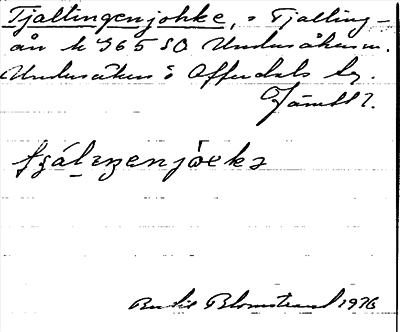 Tjaltingenjohke, = Tjalting-
ån h 965 SO Undersåkers sn.
Undersåkers o Offerdals tg.
Jämtl.
fjálŋenjåekə
Bertil Blomstrand 1976